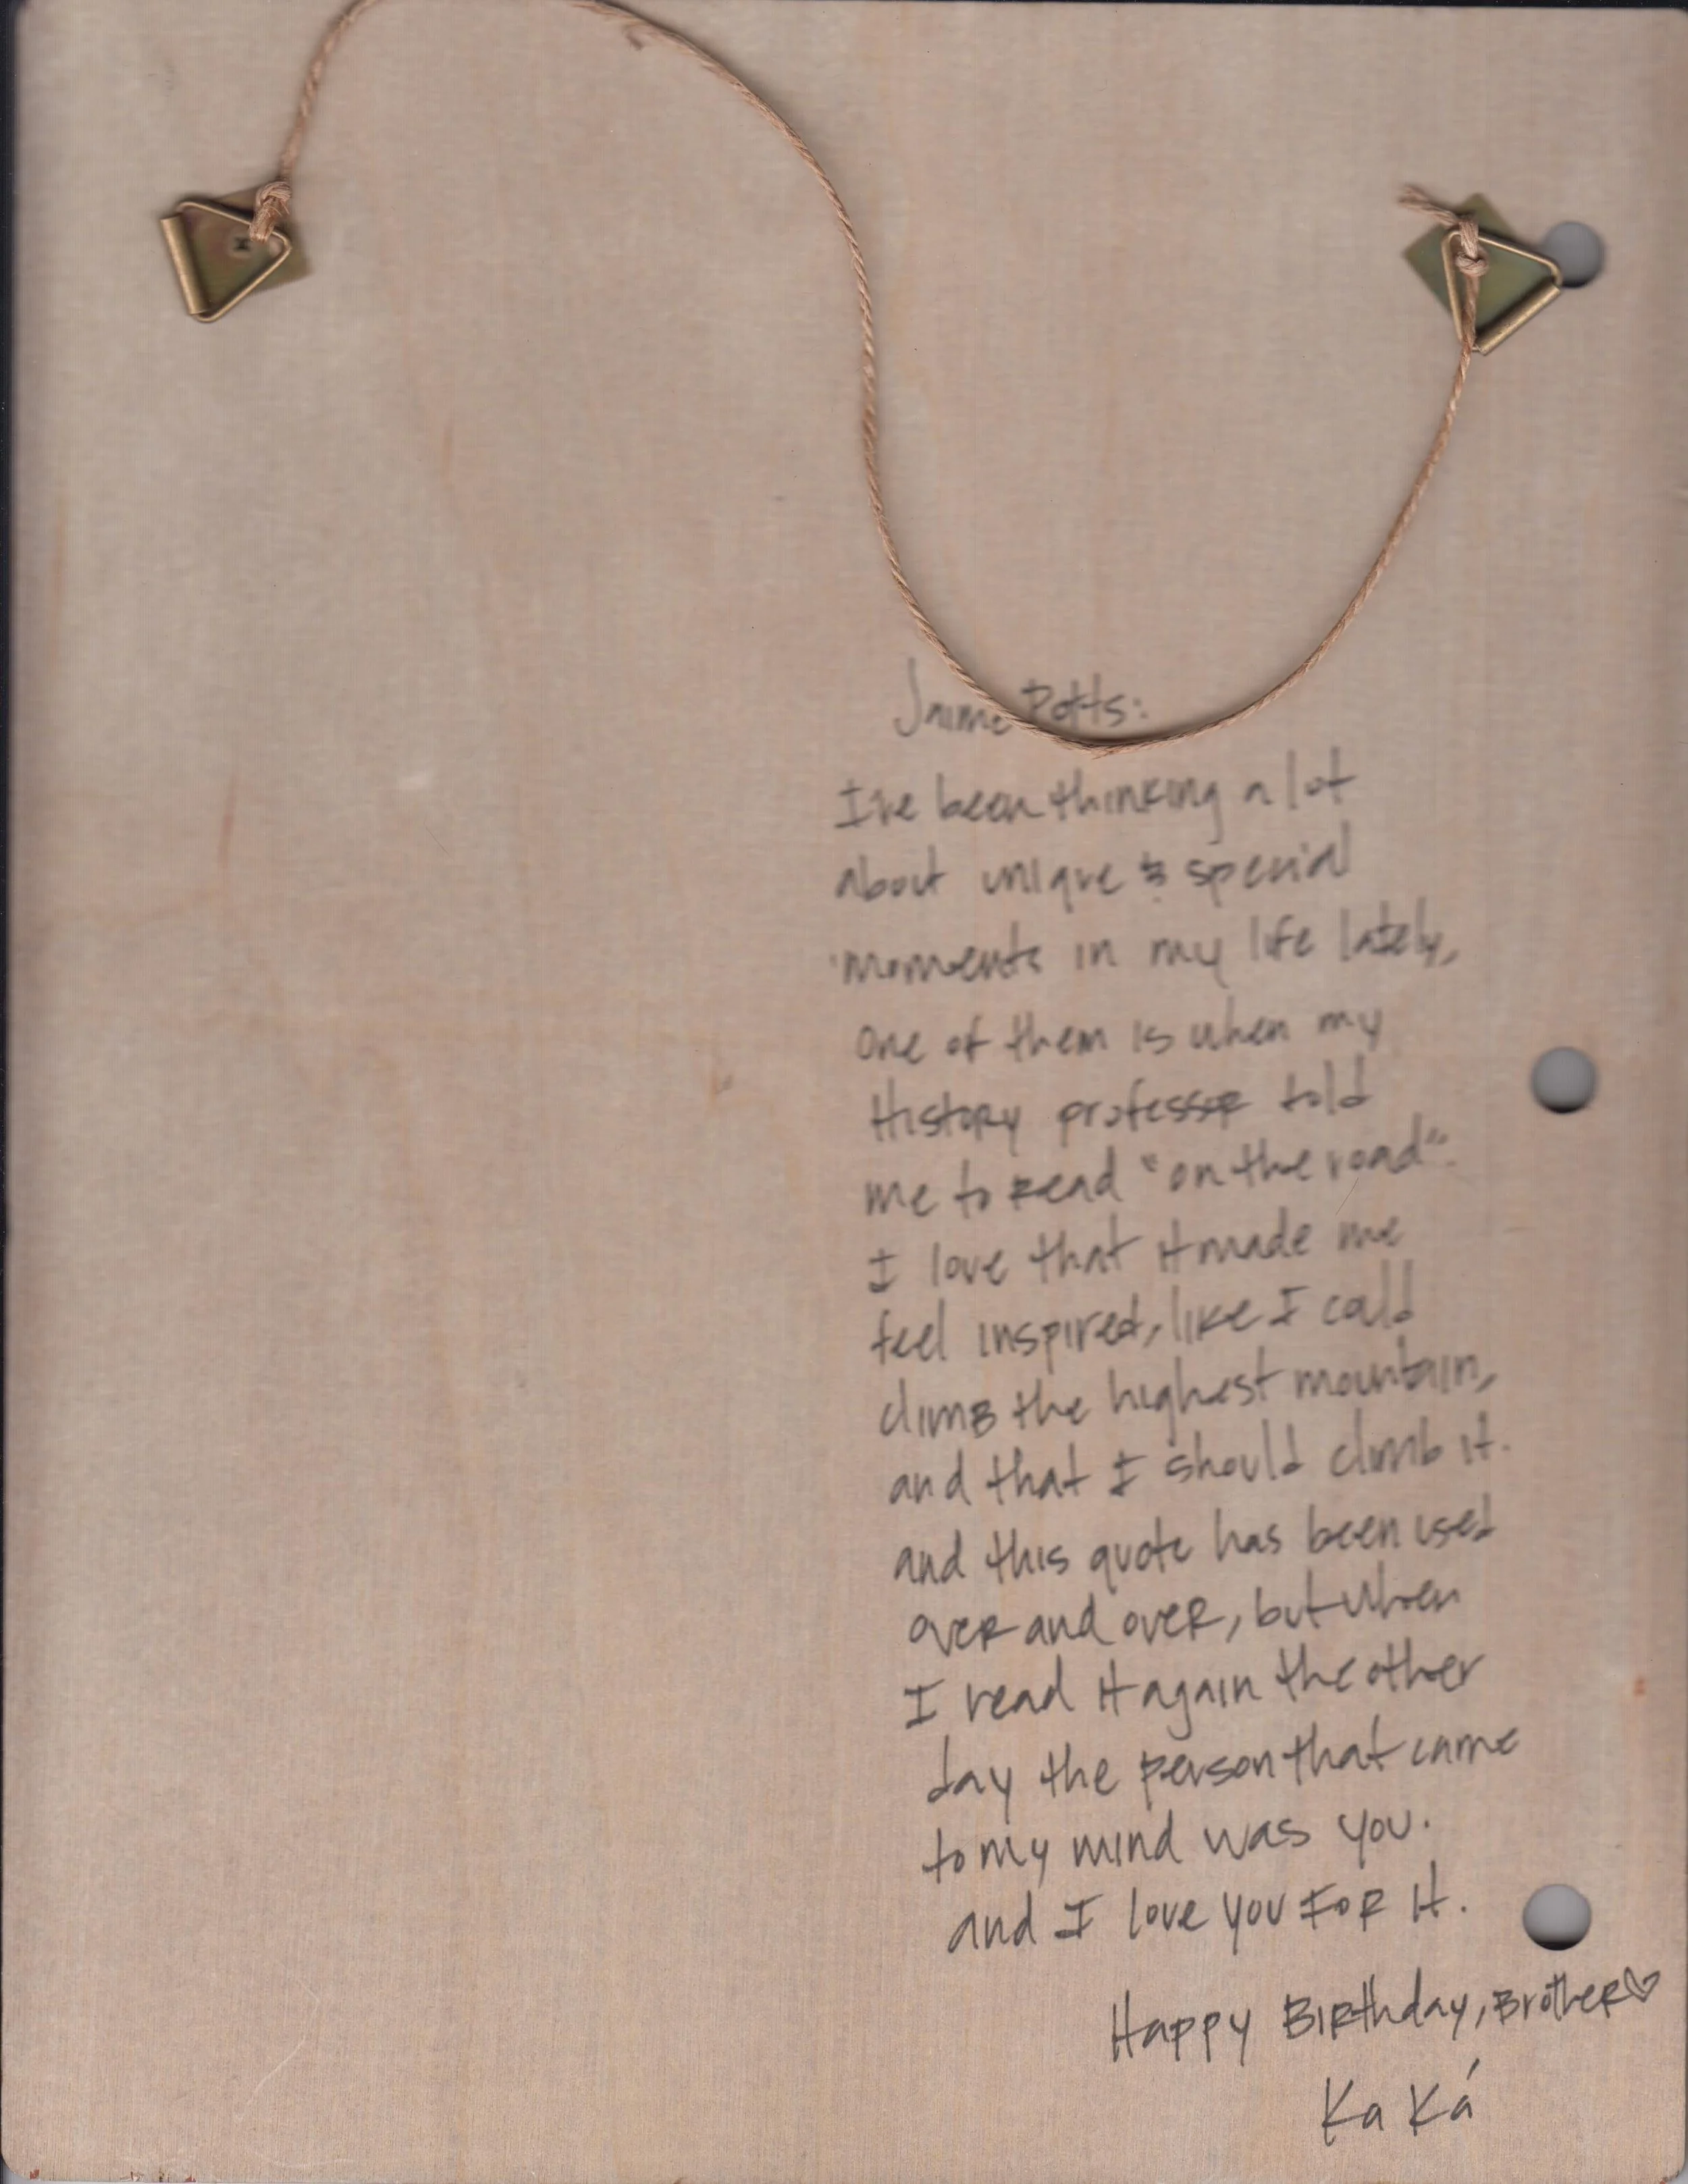 Jaime Potts:
I've been thinking a lot
about unique & special
moments in my life lately,
one of them is when my
History professor told
me to read "on the road".
I love that it made me
feel inspired, like I could
climb the highest mountain,
and that I should climb it.
and this quote has been used
over and over, but when
I read it again the other
day the person that came
to my mind was you.
and I love you FOR it.
Happy Birthday, Brother♡
Ka Ká